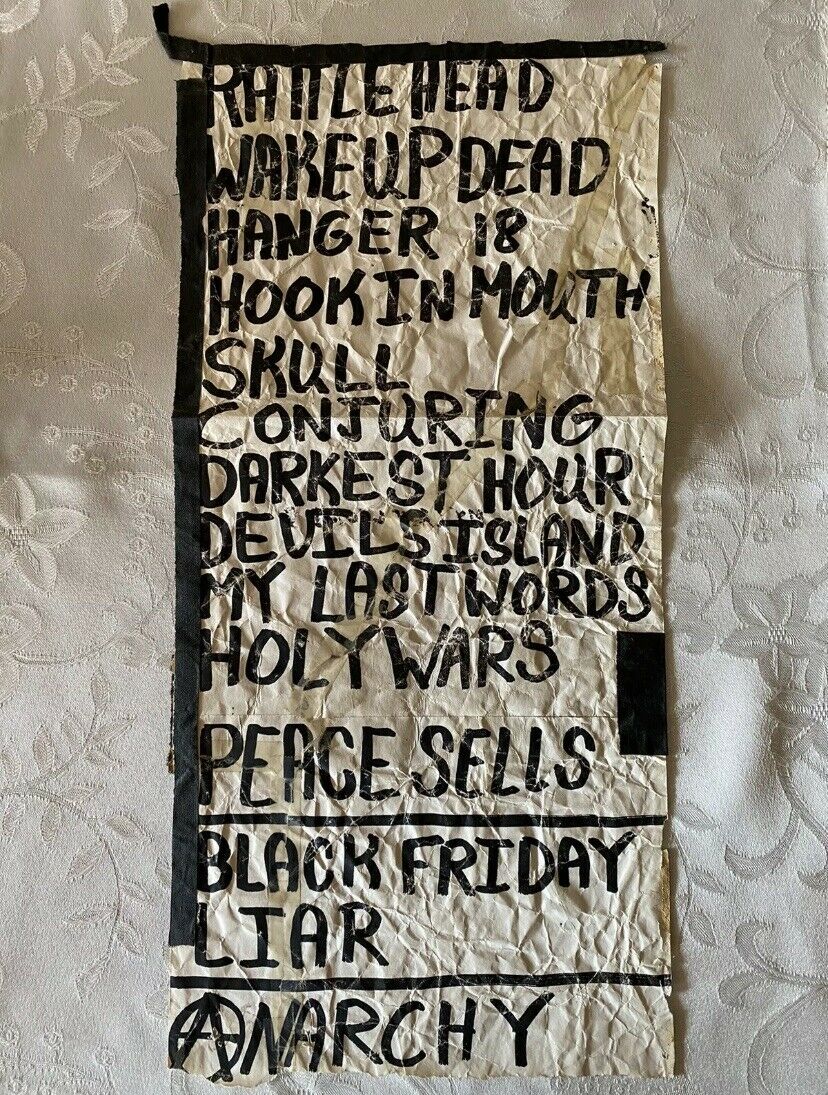 RATTLEHEAD
WAKE UP DEAD
HANGER 18
HOOK IN MOUTH
SKULL
CONJURING
DARKEST HOUR
DEVIL'S ISLAND
MY LAST WORDS
HOLY WARS
PEACE SELLS
BLACK FRIDAY
LIAR
ANARCHY